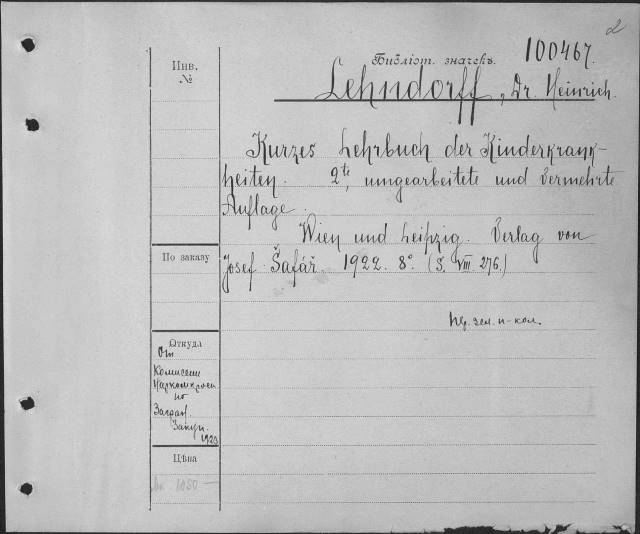 2
Библіот. значекъ.
100467.
Инв.
№
Lehndorff, Dr. Heinrich.
Kurzes Lehrbuch der Kinderkrank-
heiten. 2te, umgearbeitete und vermehrte
Auflage.
Wien und Leipzig. Verlag von
Josef Šafář. 1922. 8° (S. VIII. 276.)
По заказу
Откуда
От
Комиссии
Наркомпроса
по
Загран.
Закуп.
1923
Цѣна
1050 —